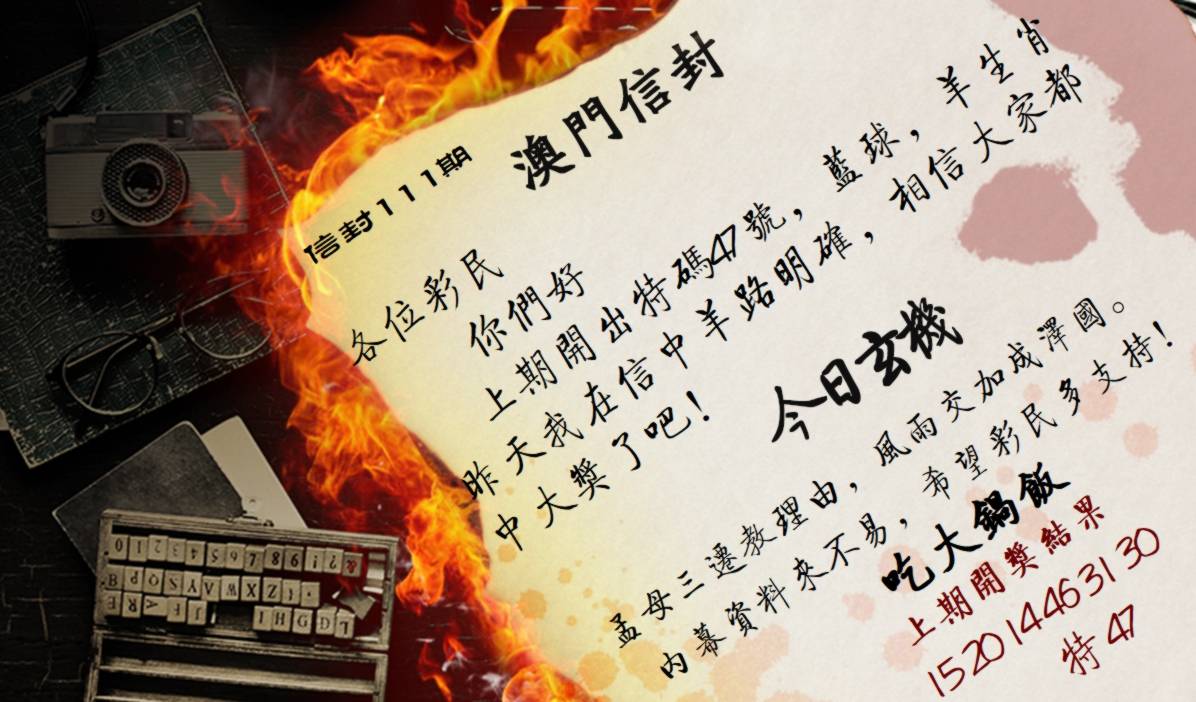 澳門信封
信封111期
各位彩民
你們好
上期開出特碼47號，藍球，羊生肖
昨天我在信中羊路明確，相信大家都
中大獎了吧！
今日玄機
孟母三遷教理由，風雨交加成澤國。
内幕資料來不易，希望彩民多支持！
吃大鍋飯
上期開獎結果
15 20 14 46 31 30
特 47
& ? ! 9 8 7 6 5 4 3 2 1 0